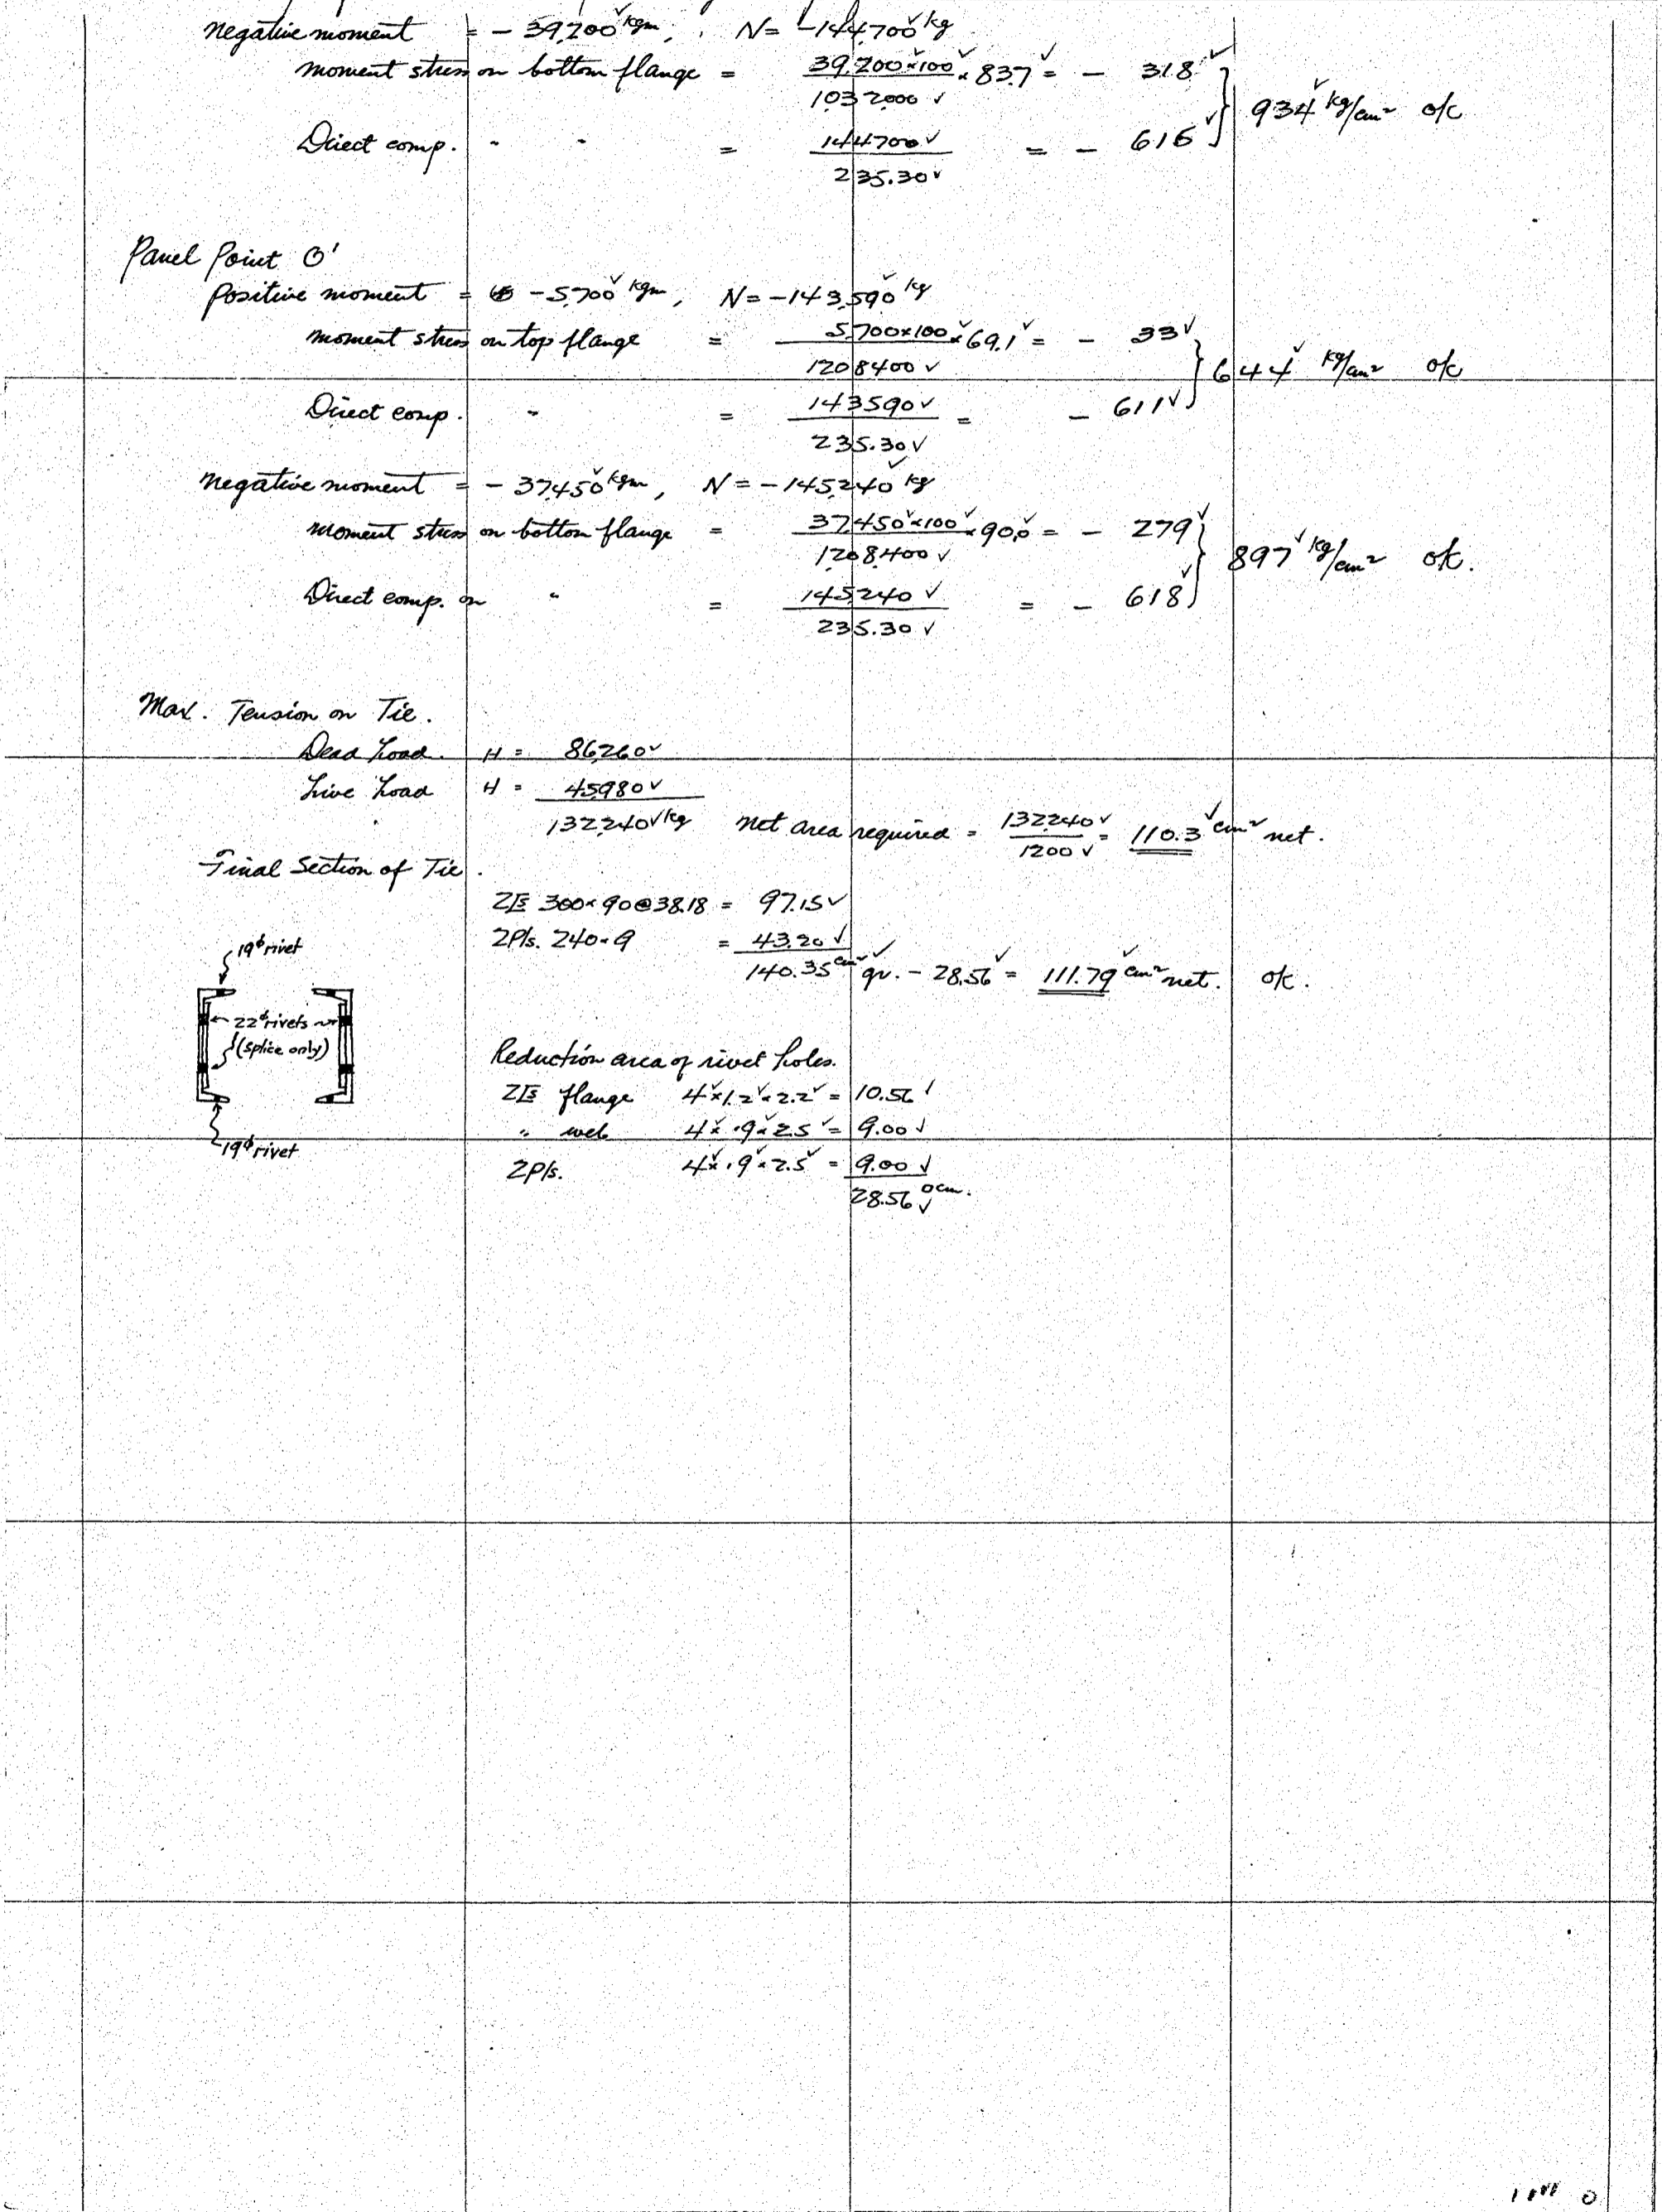 Negative moment = - 39,200 kgm, N = -144,700 kg
moment stress on bottom flange = 39,200×100 / 1,032,000 × 83.7 = - 318
} 934 kg/cm² ok
Direct comp. " " = 144700 / 235.30 = - 616
Panel Point 0'
Positive moment = -5,700 kgm, N = -143,590 kg
moment stress on top flange = 5,700×100 / 1208400 × 69.1 = - 33
} 644 kg/cm² ok
Direct comp. " = 143590 / 235.30 = - 611
Negative moment = - 37,450 kgm, N = -145,240 kg
moment stress on bottom flange = 37,450×100 / 1,208,400 × 90.0 = - 279
} 897 kg/cm² ok.
Direct comp. on " = 145,240 / 235.30 = - 618
Max. Tension on Tie.
Dead Load. H = 86,260
Live Load H = 45,980
132,240 kg Net area required = 132,240 / 1200 = 110.3 cm² net.
Final Section of Tie.
2[s 300×90@38.18 = 97.15
2Pls. 240×9 = 43.20
140.35 cm² gr. - 28.56 = 111.79 cm² net. ok.
19φ rivet
22φ rivets
(splice only)
19φ rivet
Reduction area of rivet holes.
2[s flange 4×1.2×2.2 = 10.56
" web 4×.9×2.5 = 9.00
2Pls. 4×.9×2.5 = 9.00
28.56 □cm.